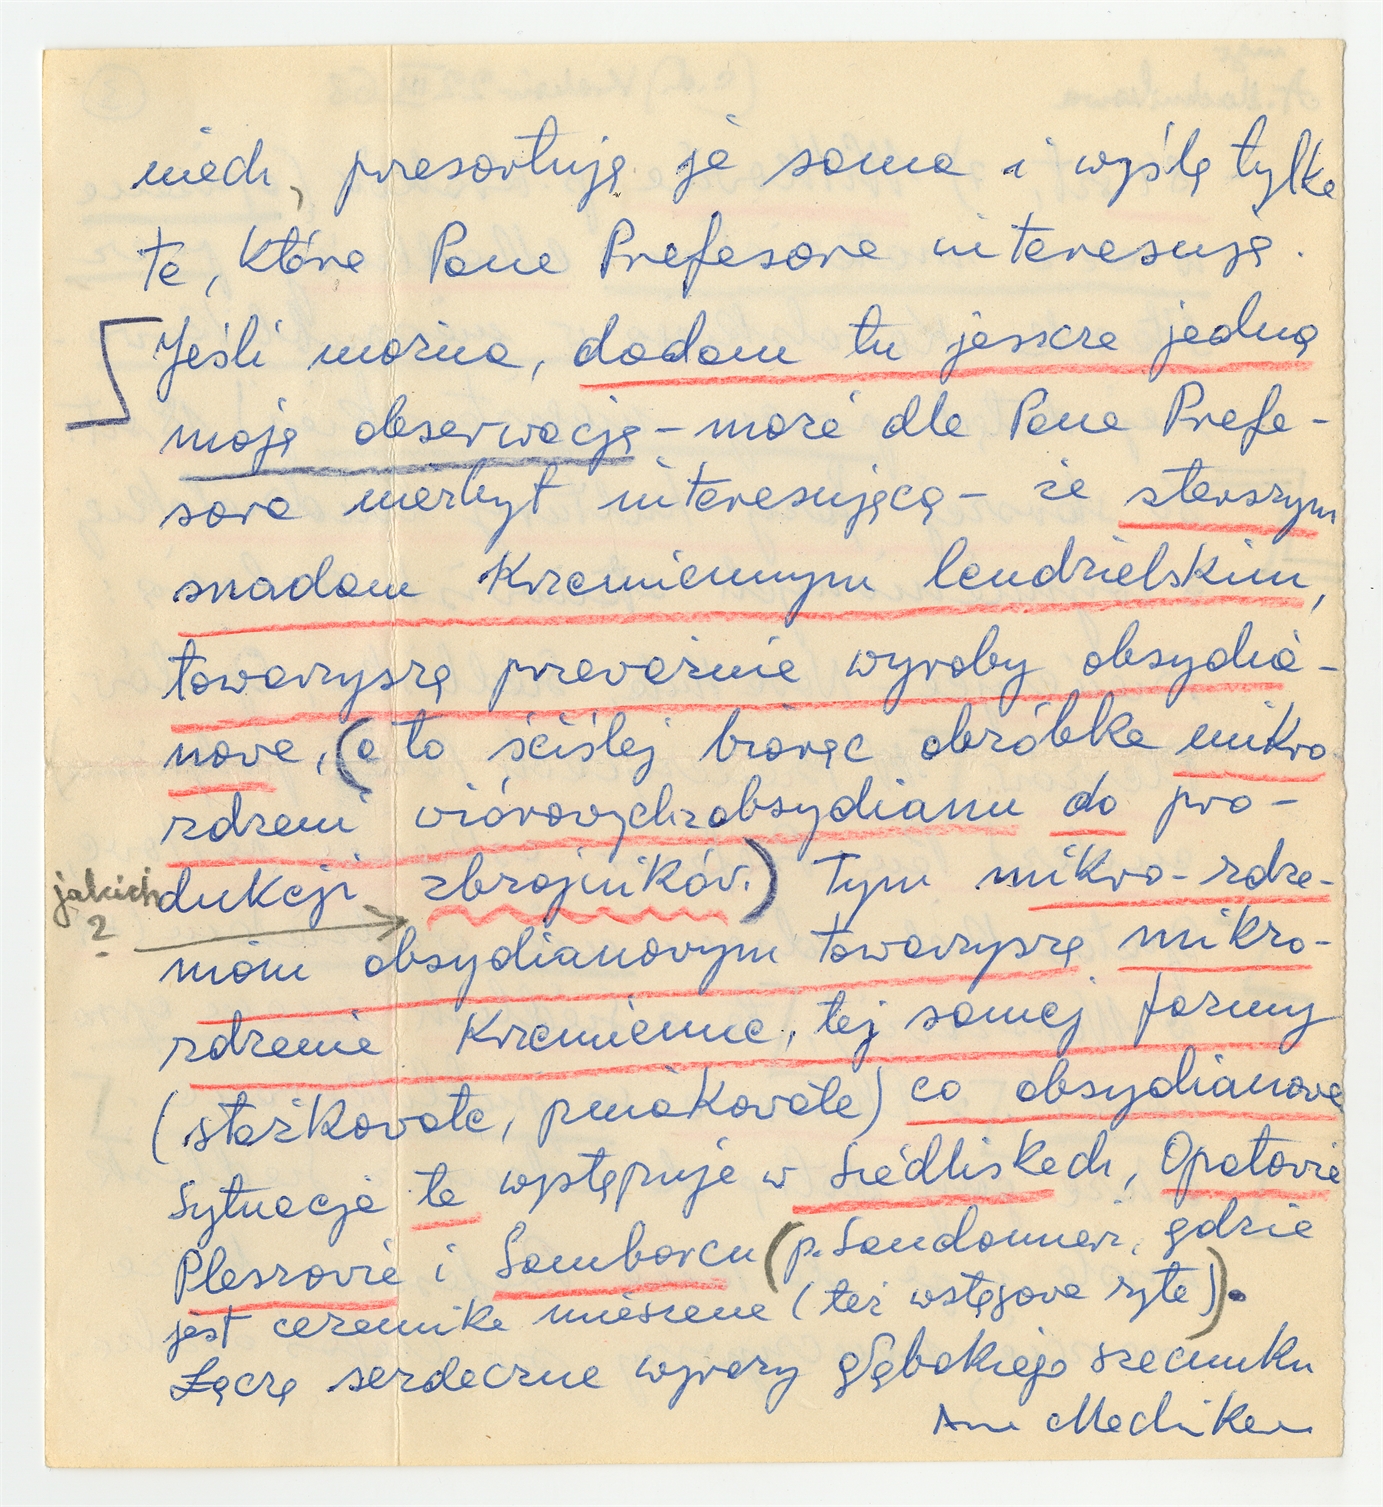 niech, presortuję je sama i wyślę tylko
te, które Pana Profesora interesują.
Jeśli można, dodam tu jeszcze jedną
moją obserwację – może dla Pana Profe-
sora niezbyt interesującą – że starszym
śladom krzemiennym lendzielskim,
towarzyszą przeważnie wyroby obsydia-
nowe, (a to ściślej biorąc obróbka mikro-
rdzeni wiórowych z obsydianu do pro-
jakich dukcji zbrojników.) Tym mikro-rdze-
?
niom obsydianowym towarzyszą mikro-
rdzenie krzemienne, tej samej formy
(stożkowate, pniakowate) co obsydianowe
Sytuacja ta występuje w Siedliskach, Opatowie
Pleszowie i Samborcu (p. Sandomierz, gdzie
jest ceramika mieszana (też wstęgowa ryta)).
Łączę serdeczne wyrazy głębokiego szacunku